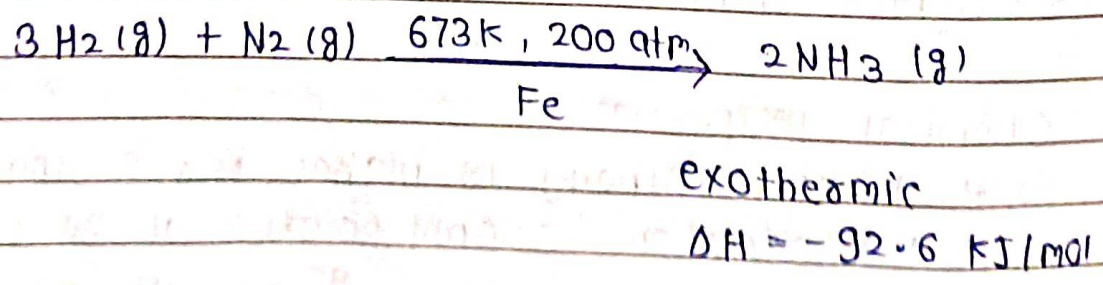 3 H2 (g) + N2 (g) 673K, 200 atm → 2NH3 (g)
Fe
exothermic
ΔH = - 92.6 KJ/mol